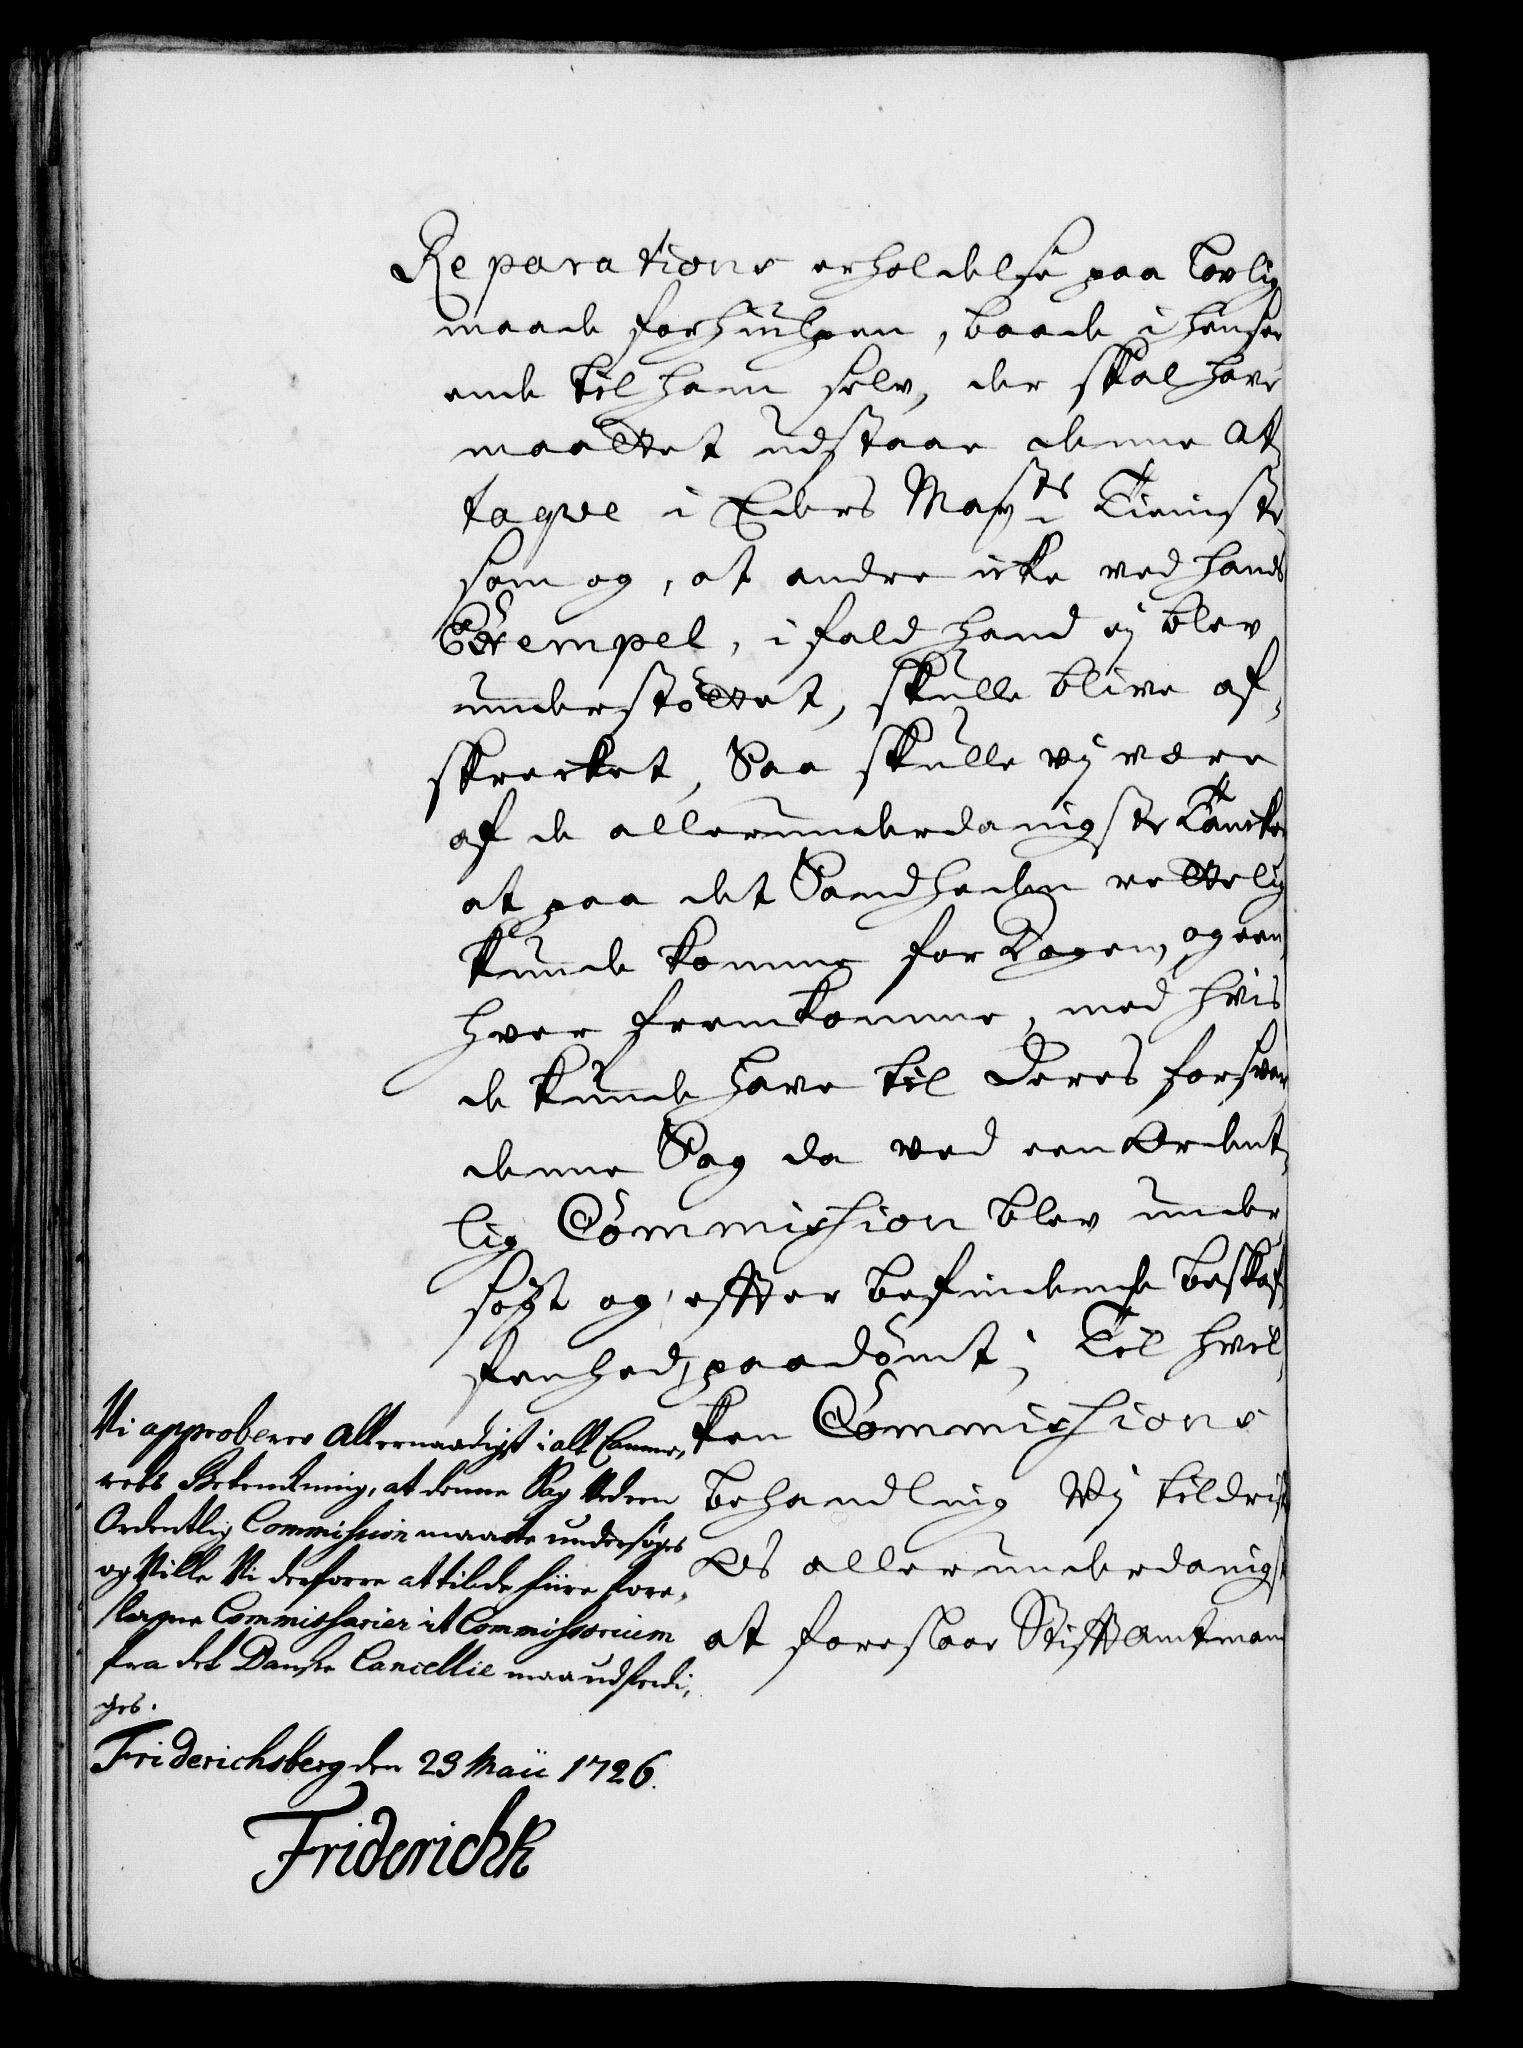 Reparations erholdelse paa lovlig
maade forhiulpen, baade i hense¬
ende til ham selv, der skal have
maattet udstaae denne At¬
taqve i Eders Mayts Tieniste
som og, at andre icke ved hands
Exempel, i fald hand ej blev
understöttet, skulle blive af¬
skrecket, Saa skulle vj være
af de allerunderdanigste Tancker
at paa det Sandheden rettelig
kunde komme for Dagen, og een
hver fremkomme, med hvis
de kunde have til deres forsvar
denne Sag da ved een Ordent¬
lig Commission blev under
søgt og effter befindende beskaf¬
fenhed, paadömt; Til hvil¬
ken Commissions
behandling Vj tildrist
Os allerunderdanigst
at foreslaae Stifftamtmand
Vi approberer Allernaadigst i alt Camme¬
rets Betenckning, at denne Sag ved een
Ordentlig Commission maatte undersøges
og Ville Vi derforre at til de fiire fore¬
slagne Commissarier it Commissorium
fra det Danske Cancellie maa udferdi¬
ges.
Friderichsberg den 23 Maii 1726.
Friderich R